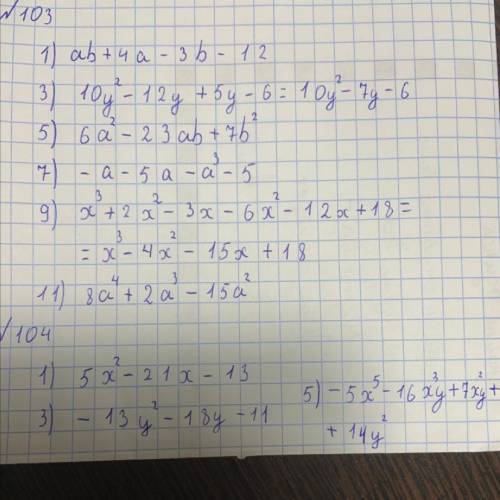 √103
1) ab + 4a - 3b - 12
3) 10y² - 12y + 5y - 6 = 10y² - 7y - 6
5) 6a² - 23ab + 7b²
7) - a - 5a - a³ - 5
9) x³ + 2x² - 3x - 6x² - 12x + 18 =
= x³ - 4x² - 15x + 18
11) 8a⁴ + 2a³ - 15a²
√104
1) 5x² - 21x - 13
3) - 13y² - 18y - 11
5) - 5x⁵ - 16x³y + 7xy² +
+ 14y²